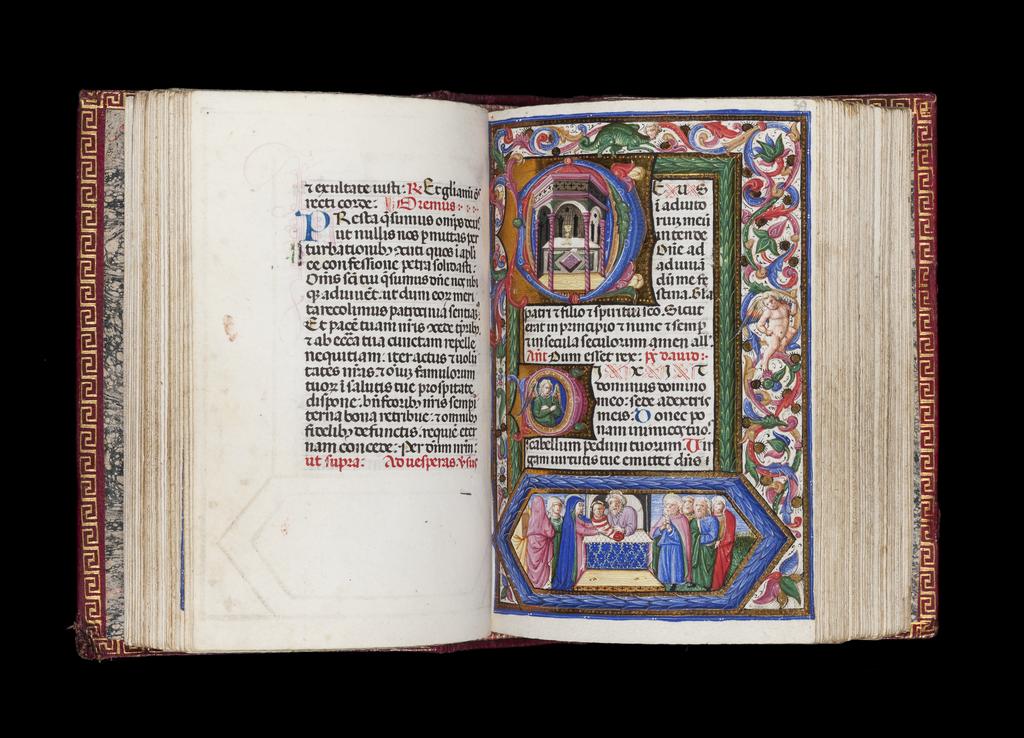 ⁊ exultate iusti: R Et gliamīs
recti corde. Oremus:
PResta qs̄umus omīps deus
ut nullis nos pmittas per
turbationibȝ cuti quos i apli
ce confessionis petra solidasti.
Om̄s sc̄i tui qs̄umus dn̄e nos ubi
qȝ adiuuēt. ut dum eoȝ meri
ta recolimus patrocinia sentiaꝫ
Et pacē tuam nr̄is cede tp̄ribȝ
⁊ ab ecc̄a tua cunctam repelle
nequitiam: iter actus ⁊ uolū
tates nr̄as: ⁊ oīuȝ famulorum
tuoȝ i salutis tue prospitate
dispone: bn̄foribȝ nr̄is sempi
terna bona retribue: ⁊ omnibȝ
fidelibȝ defunctis. requiē eter
nam concede. Per dn̄m nr̄m.
ut supra. Ad uesperas. ūsus
EUS
i adiuto
rium meū
intende
Dn̄e ad
adiuuā
dū me fe
stina. Gla
patri ⁊ filio ⁊ spiritui sc̄o. Sicut
erat in principio ⁊ nunc ⁊ semp
⁊ in secula seculorum amen all'.
An̄t Dum esset rex. ps dauid.
IXIT
dominus domino
meo: sede a dextris
meis. Donec po
nam inimicos tuos:
scabellum pedum tuorum. Uir
gam uirtutis tue emittet dn̄s i